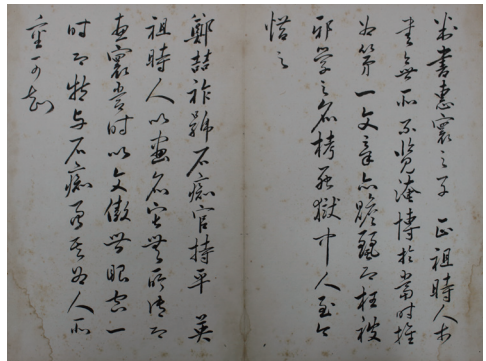 書惠寰之子 正祖時人
書無所不覽淹博於當時推
為第一文章亦贍麗而枉被
邪學之名栲死獄中人至今
惜之
鄭喆祚號石痴官持平 英
祖時人以畫名宇無所傳而
惠寰當時以文傲世眼空一
時而特与石痴為人所
重可知